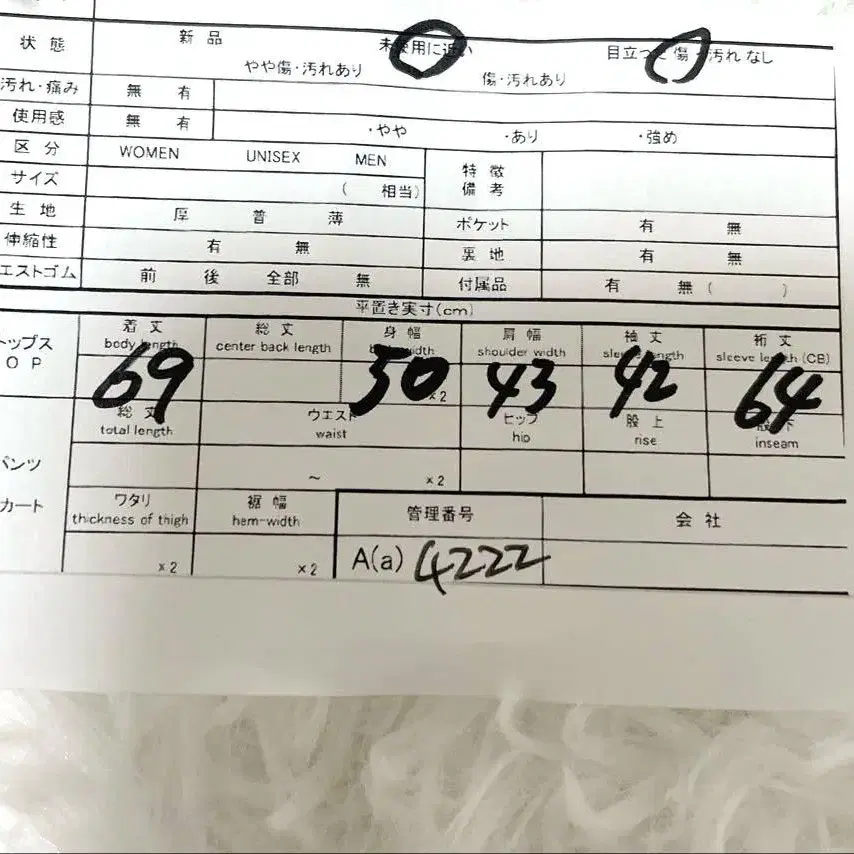 状態 新品 未使用に近い 目立った傷・汚れなし
やや傷・汚れあり 傷・汚れあり
汚れ・痛み 無 有
使用感 無 有 ・やや ・あり ・強め
区分 WOMEN UNISEX MEN 特徴
備考
サイズ ( 相当)
生地 厚 普 薄 ポケット 有 無
伸縮性 有 無 裏地 有 無
エストゴム 前 後 全部 無 付属品 有 無 ( )
平置き実寸(cm)
トップス
OP
着丈 総丈 身幅 肩幅 袖丈 裄丈
body length center back length body width shoulder width sleeve length sleeve length (CB)
69 50 ×2 43 42 64
総丈 ウエスト ヒップ 股上 股下
total length waist hip rise inseam
パンツ
~ ×2
カート
ワタリ 裾幅 管理番号 会社
thickness of thigh hem-width
×2 ×2 A(a) 4222